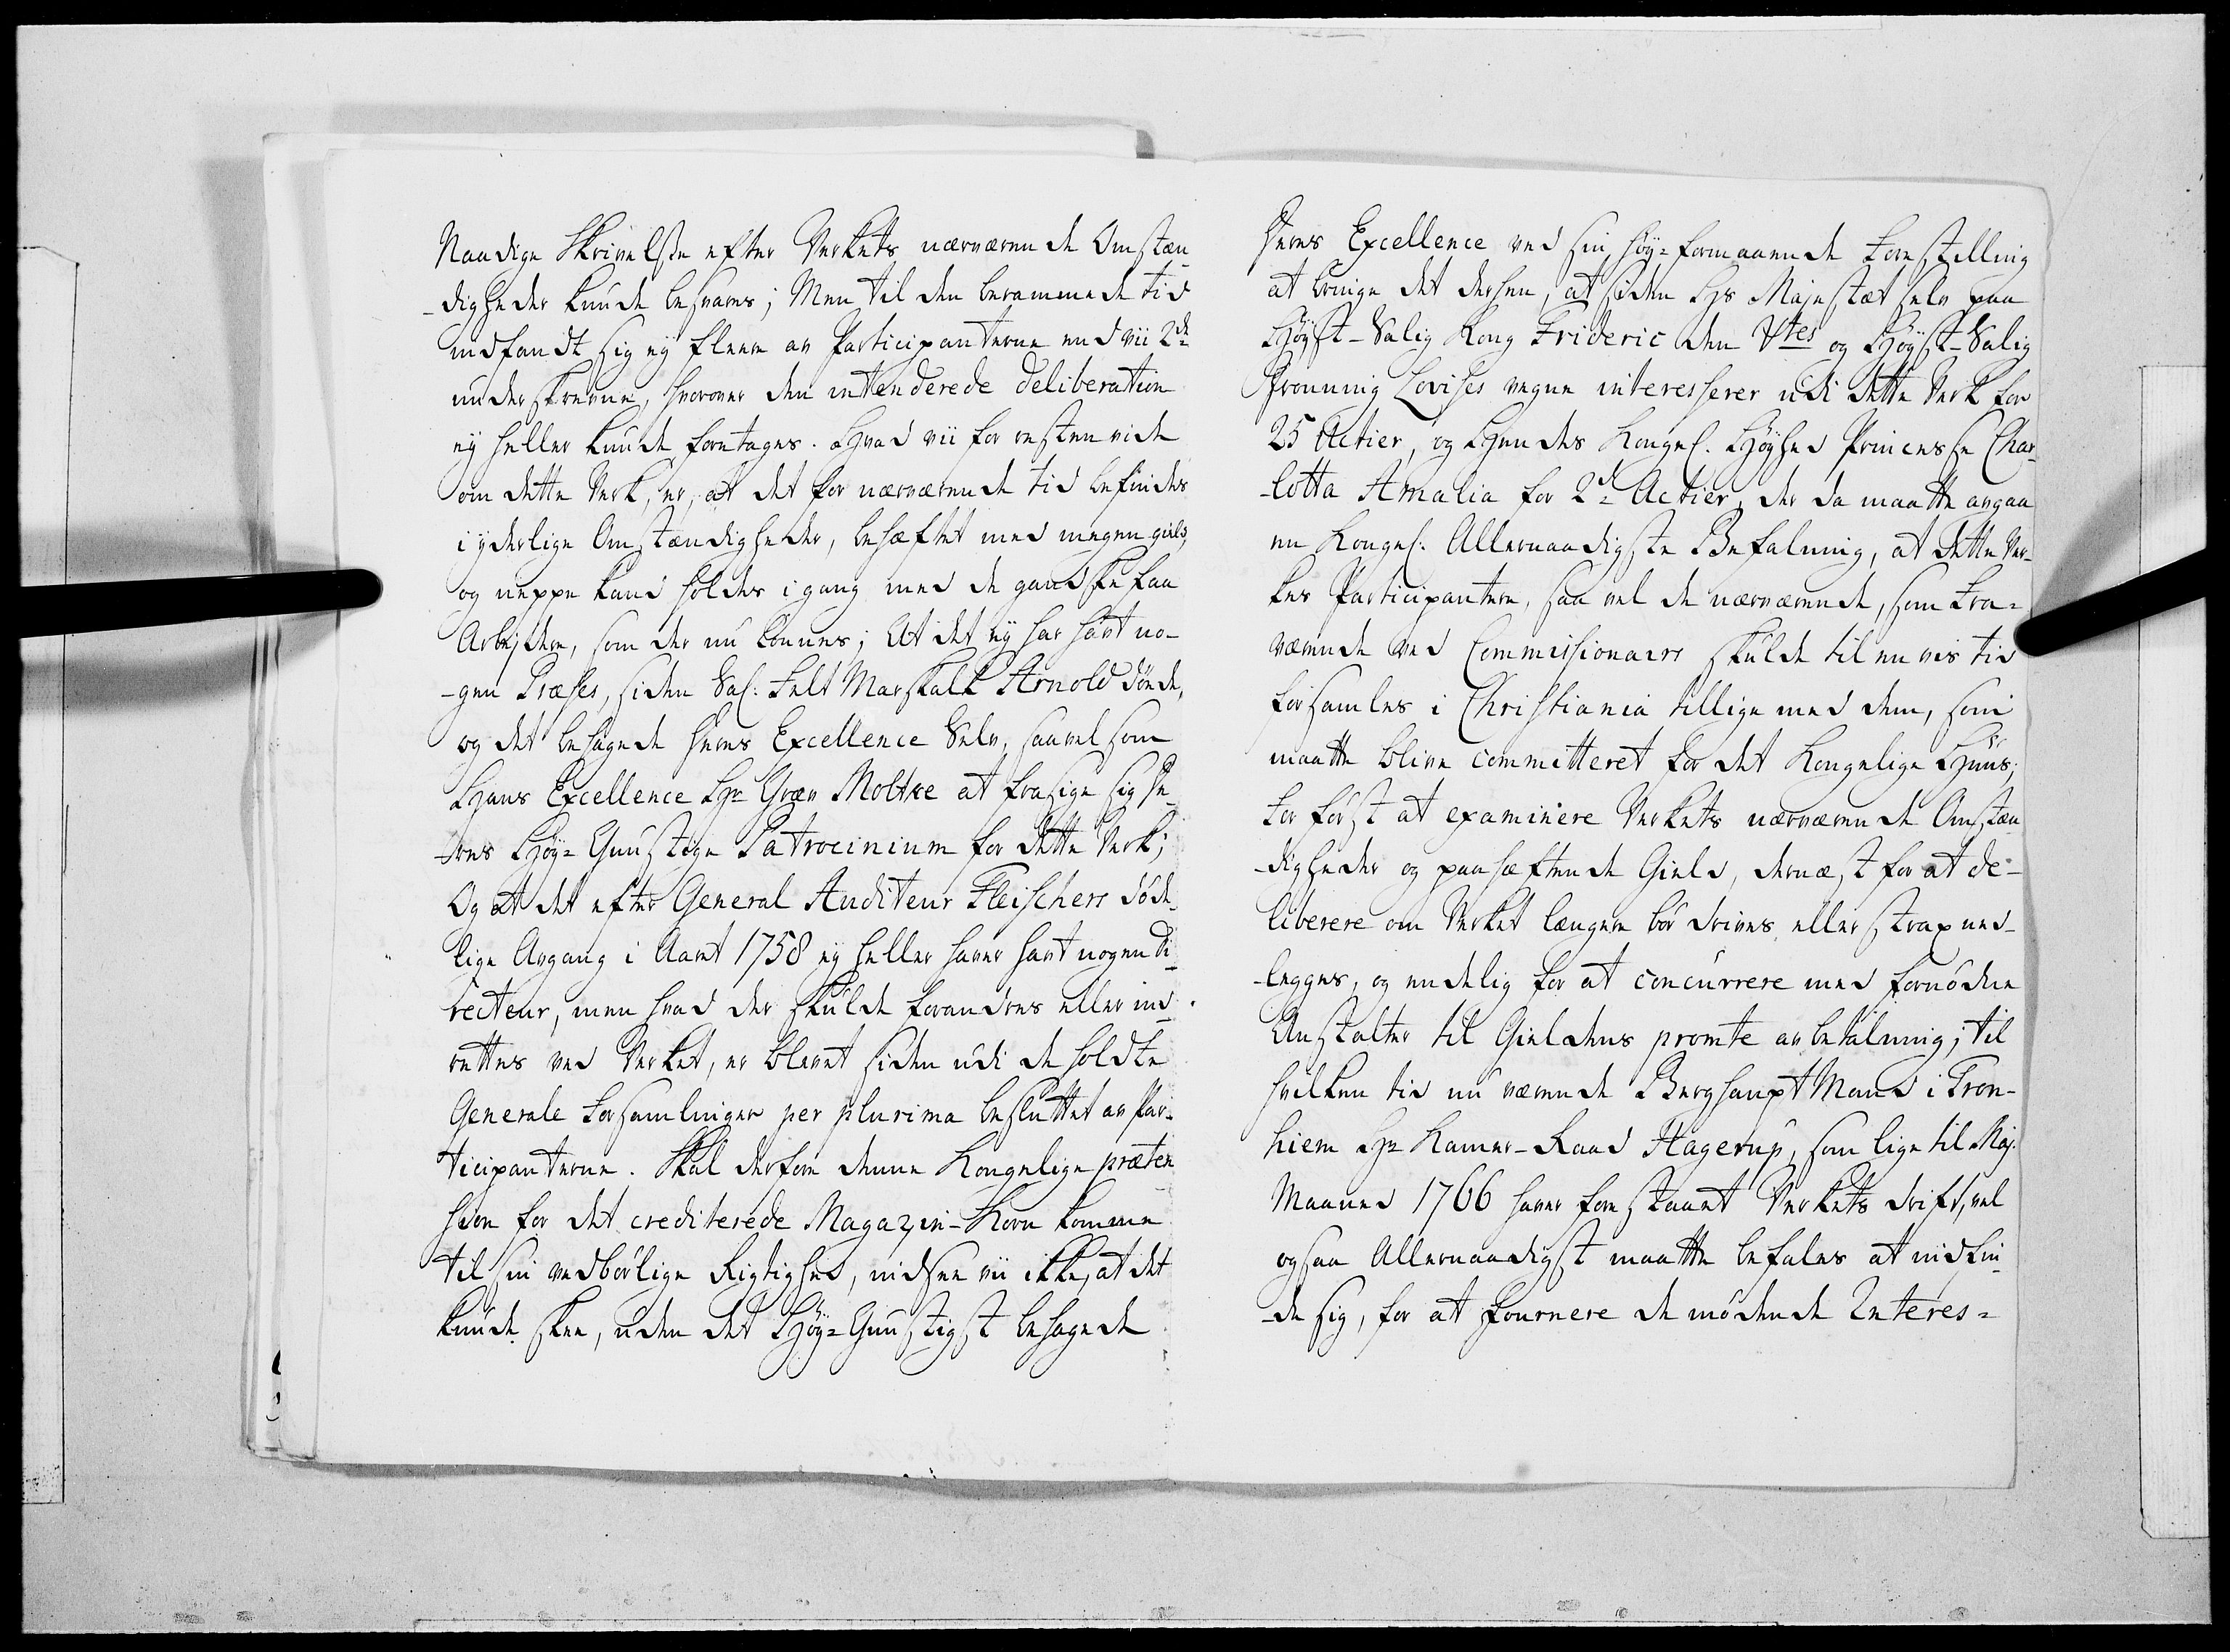 Naadige Skrivelse efter Verkets nærværende Omstæn
-digheder kunde besvares; Men til den berammede tid
indfandt sig ej fleere av Participanterne end vii 2de
underskrevne, hvorover den intenderede deliberation
ej heller kunde foretages. Hvad vii for resten vide
om dette Verk, er, at det for nærværende tid befindes
i yderlige Omstændigheder, behæftet med megen gield,
og neppe kand holdes i gang med de gandske faa
Arbejdere, som der nu lønnes; At det ej har havt no-
-gen Præses, siden Sal: Felt Marskalk Arnold døde,
og det behagede Hans Excellence Selv, saavel som
Hans Excellence Hr Grev Moltke at frasige sig De
-res Høy-Gunstige Patrocinium for dette Verk;
Og at det efter General Auditeur Fleischers død-
lige Avgang i Aaret 1758 ej heller haver havt nogen Di-
recteur, men hvad der skulde forandres eller ind-
rettes ved Verket, er blevet siden udi de holdte
Generale Forsamlinger per plurima besluttet av Par-
ticipanterne. Skal derfore denne Kongelige præten
sion for det crediterede Magazin-Korn komme
til sin vedbørlige Rigtighed, indsee vii ikke, at det
kunde skee, uden det Høy-Gunstigst behagede
Deres Excellence ved sin høy-formaaende Forestilling
at bringe det derhen, at siden Hs Majestæt selv paa
Høyst-Salig Kong Frideric den Vtes og Høyst-Salig
Dronning Lovises vegne interesserer udi dette Verk for
25 Actier, og Hendes Kongel. Høyhed Princesse Char
-lotta Amalia for 2de Actier, der da maatte avgaa
en Kongel: Allernaadigste Befalning, at dette Ver-
kes Participantere, saa vel de nærværende, som Fra-
værende ved Commissionairs skulde til en vis tid
forsamles i Christiania tillige med dem, som
maatte blive committeret for det Kongelige Huus,
for først at examinere Verkets nærværende Omstæn
-digheder og paahæftende Gield, dernæst for at de-
liberere om Verket længere bør drives eller strax ned-
-legges, og endelig for at concurrere med fornødne
Anstalter til Gieldens promte avbetalning; til
hvilken tid nu værende Berghaupt Mand i Tron-
hiem Hr Kamer-Raad Hagerup, som lige til Maj.
Maaned 1766 haver forestaaet Verkets drift, vel
ogsaa Allernaadigst maatte befales at indfin
-de sig, for at fournere de mødende Interes-